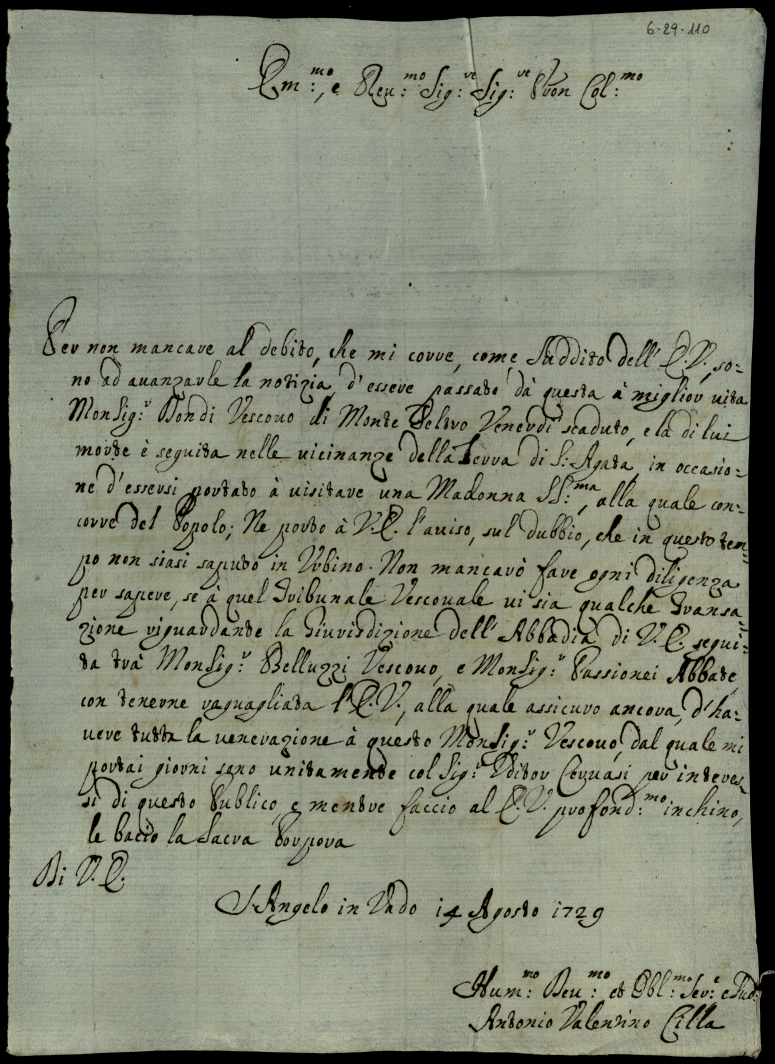 6-29-110
Em:mo, e Reu:mo Sig:re Sig:re Pron Col:mo
Per non mancare al debito, che mi corre, come Suddito dell' E.V., so=
no ad auanzarle la notizia, d'essere passato da questa à miglior uita
Monsig:r Bondi Vescouo di Monte Feltro Venerdì scaduto, e la di lui
morte è seguita nelle uicinanze della Terra di S: Agata, in occasio=
ne d'essersi portato à uisitare una Madonna SS:ma, alla quale con=
corre del Popolo; Ne porto à V.E. l'auiso, sul dubbio, che in questo tem=
po non siasi saputo in Vrbino. Non mancarò fare ogni diligenza
per sapere, se à quel Tribunale Vescouale ui sia qualche transa=
zione riguardante la Giurisdizione dell' Abbadia di V.E. segui=
ta trà Monsig:r Belluzzi Vescouo, e Monsig:r Passionei Abbate,
con tenerne raguagliata l'E.V., alla quale assicuro ancora, d'ha=
uere tutta la uenerazione à questo Monsig:r Vescouo, dal quale mi
portai giorni sono unitamente col Sig:r Vditor Ceruasi per interes=
si di questo Publico, e mentre faccio al E.V. profond:mo inchino,
le bacio la Sacra Porpora
Di V.E.
S. Angelo in Vado 14 Agosto 1729
Hum:mo Deu:mo et Obl:mo Ser:e e Sud:
Antonio Valentino Cilla